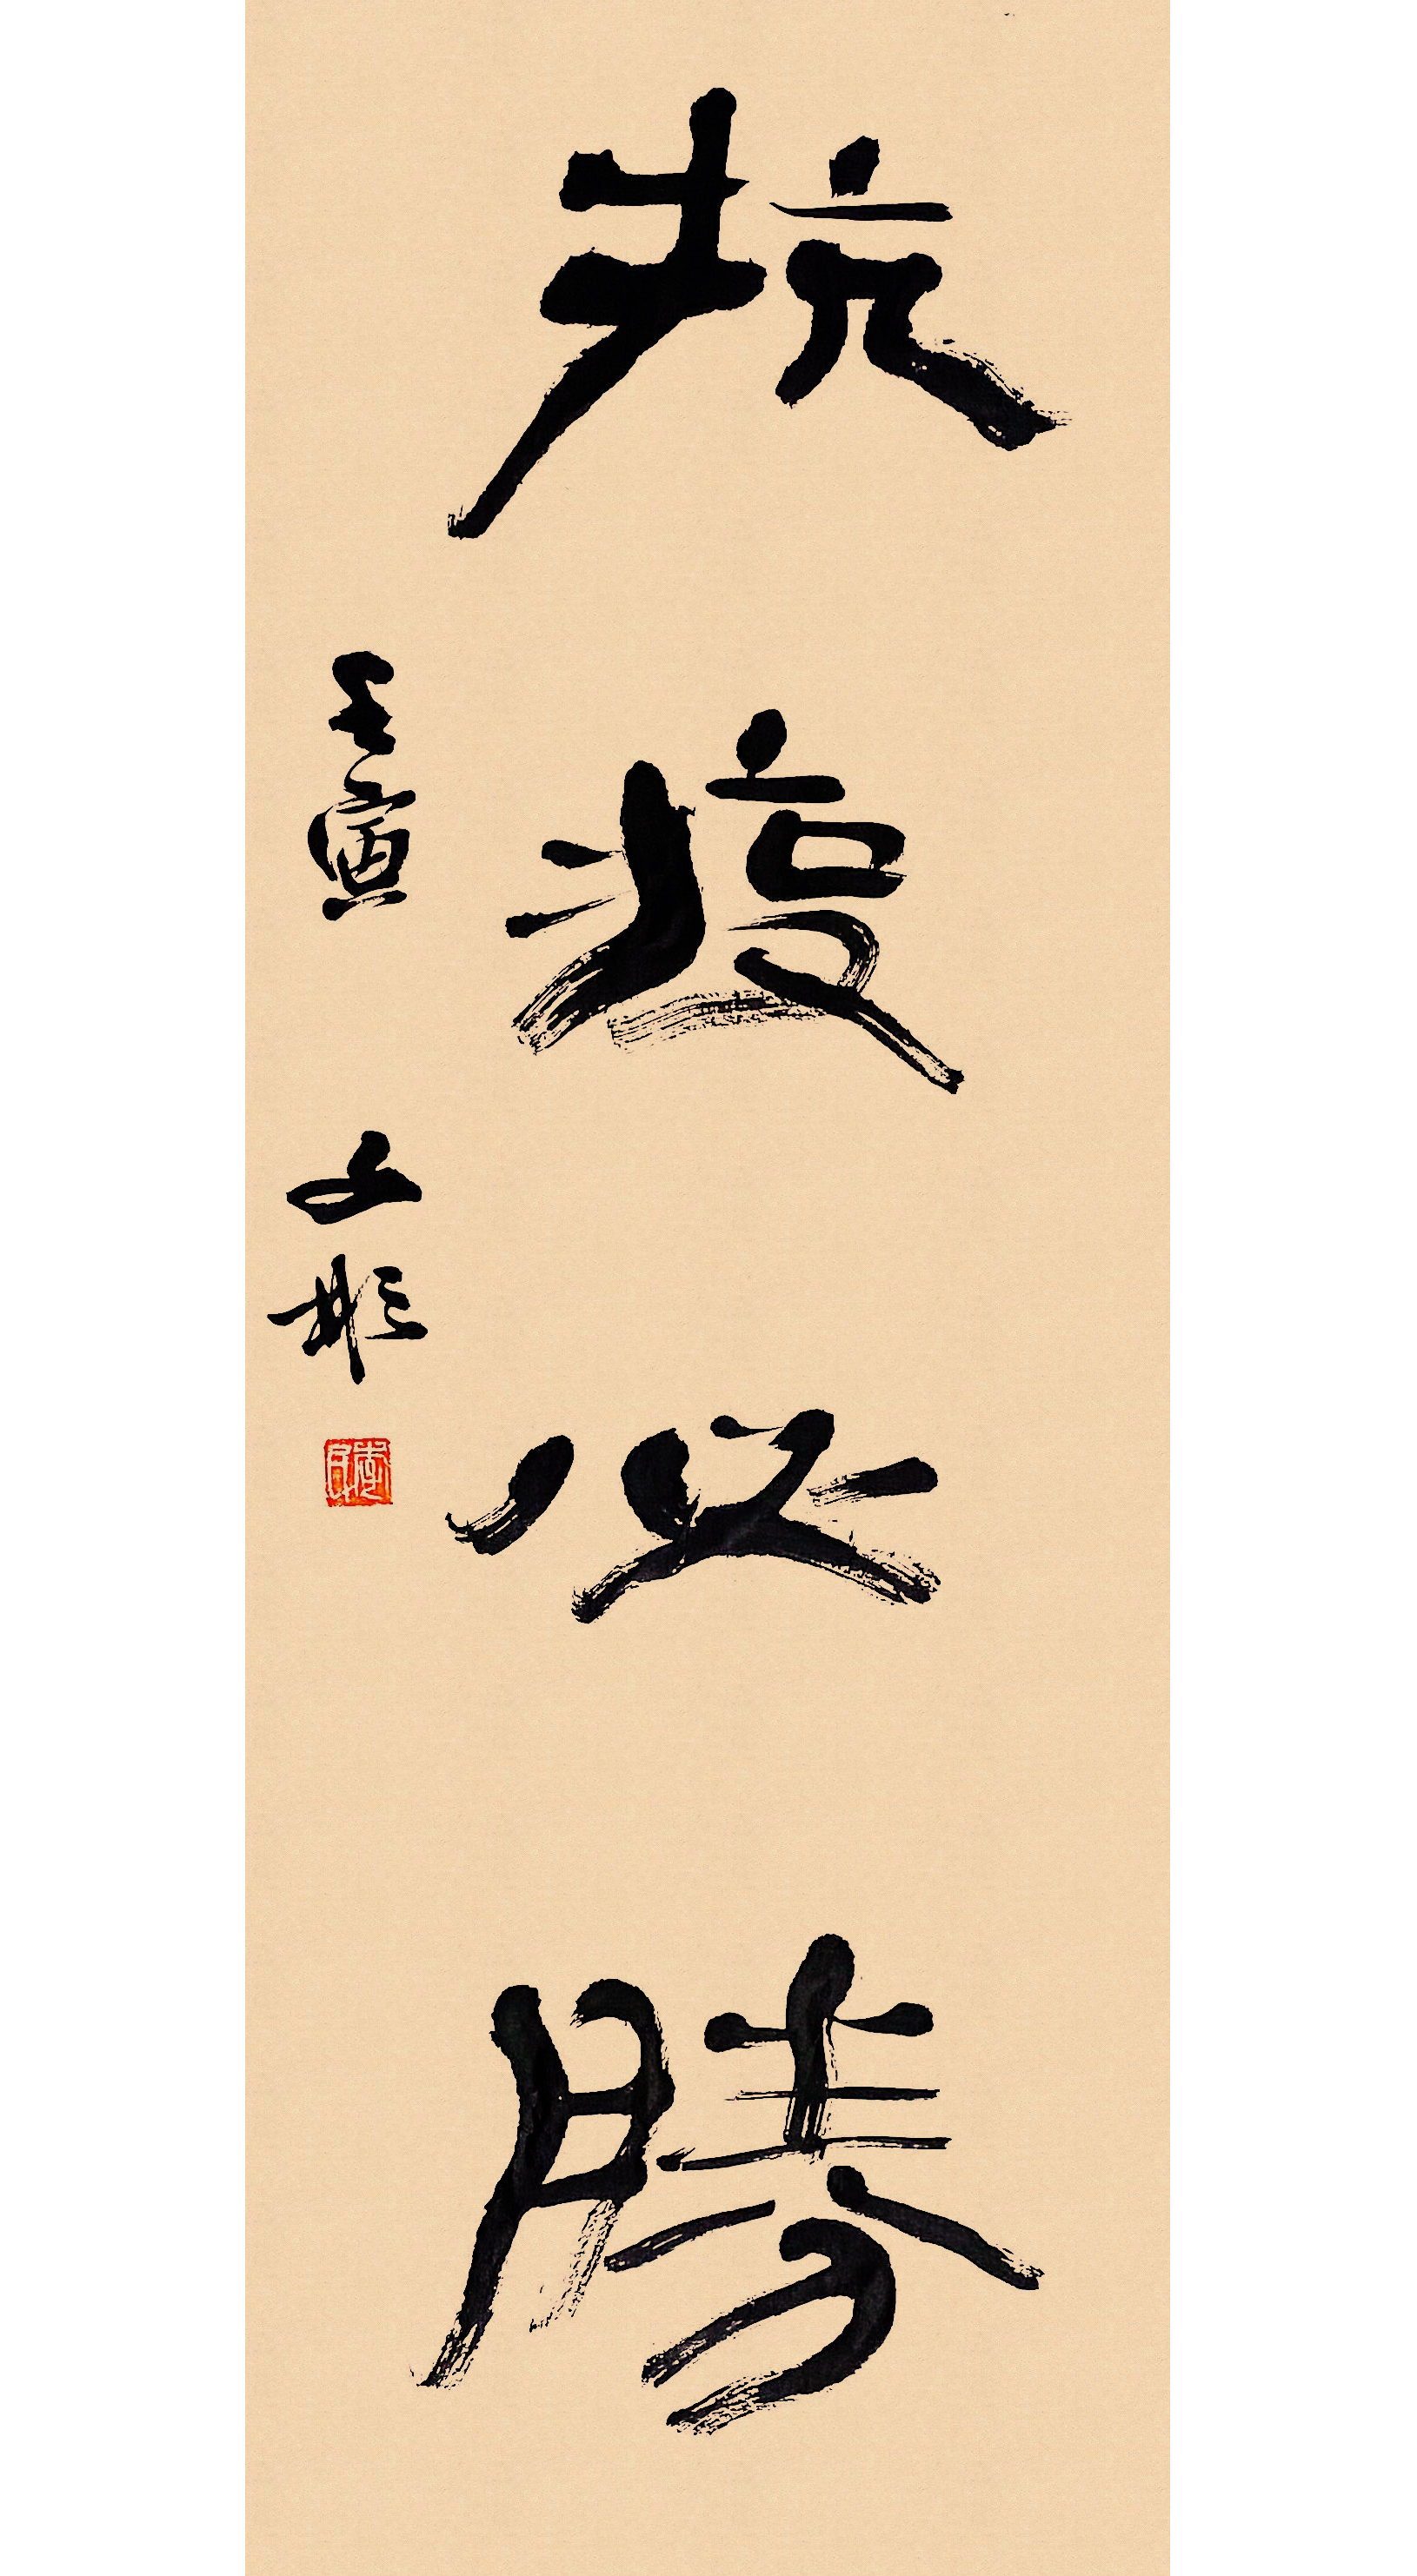 抗疫必勝
壬寅 文彬